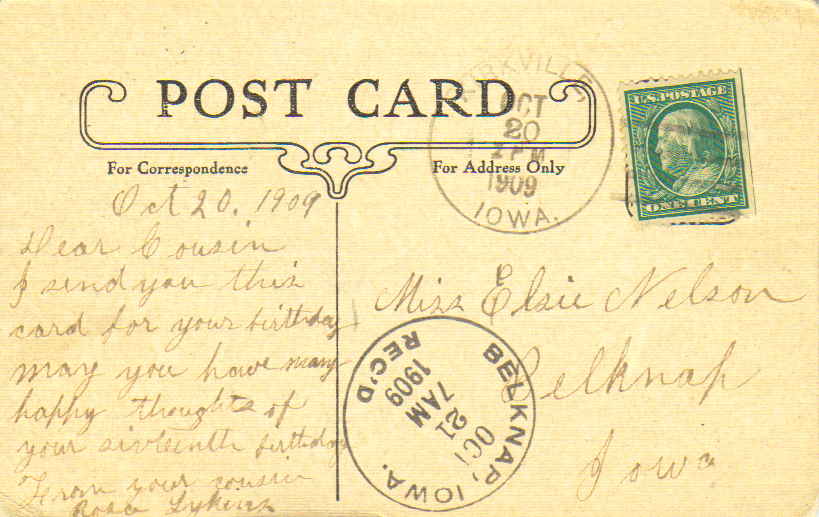 POST CARD
For Correspondence
For Address Only
KIRKVILLE,
OCT
20
1909
IOWA.
U.S. POSTAGE
ONE CENT
Oct 20. 1909
Dear Cousin
I send you this
card for your birthday
may you have many
happy thoughts of
your sixteenth birthday
From your cousin
Rosa
Miss Elsie Nelson
Belknap
Iowa
BELKNAP, IOWA.
OCT
21
7AM
1909
REC'D